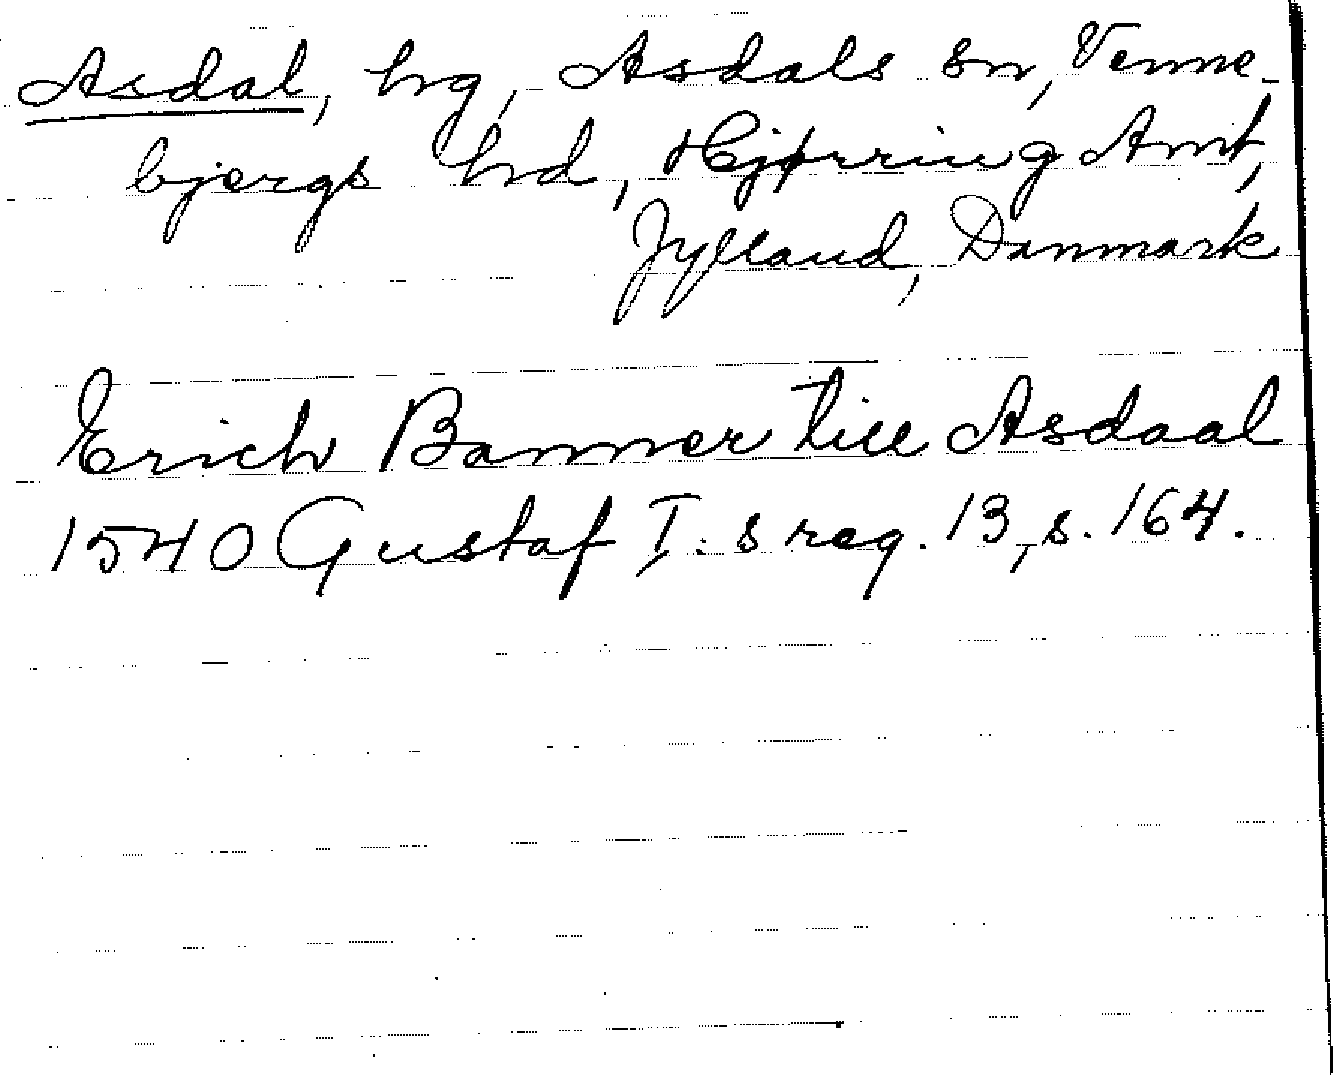 Asdal, hg, Asdals sn, Venne-
bjergs hd, Hjørring Amt,
Jylland, Danmark
Erich Banner till Asdaal
1540 Gustaf I:s reg. 13, s. 164.